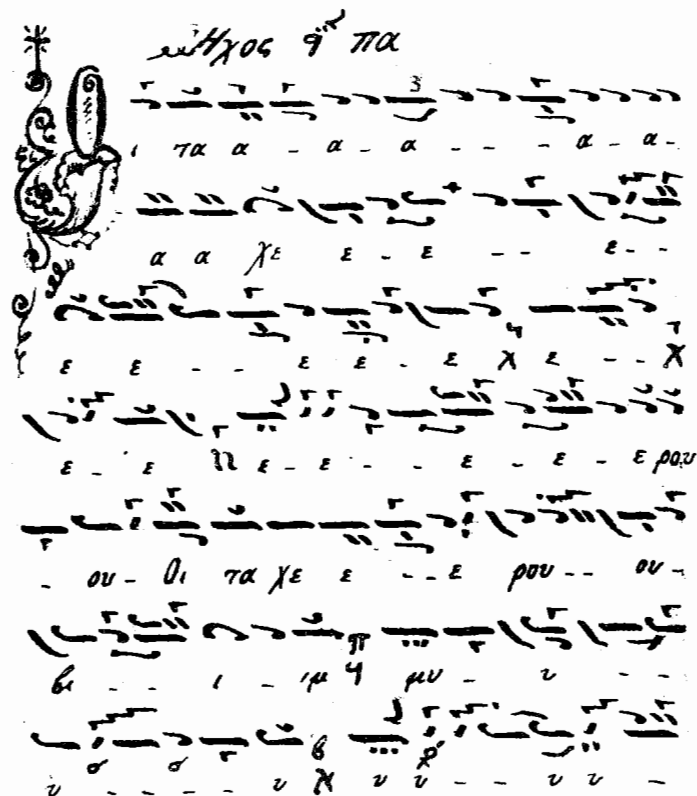 Ἦχος πα
ι τα α - α - α - - - α - α -
α α χε ε - ε - - ε - -
ε ε - - ε ε - ε χ ε - - χ
ε - ε ε - ε - - - ε - ε - ε ρου
- ου - Οι τα χε ε - - ε ρου - - ου -
βι - - ι - ιμ μυ - υ - -
υ - - - - υ υ υ - - υ υ -